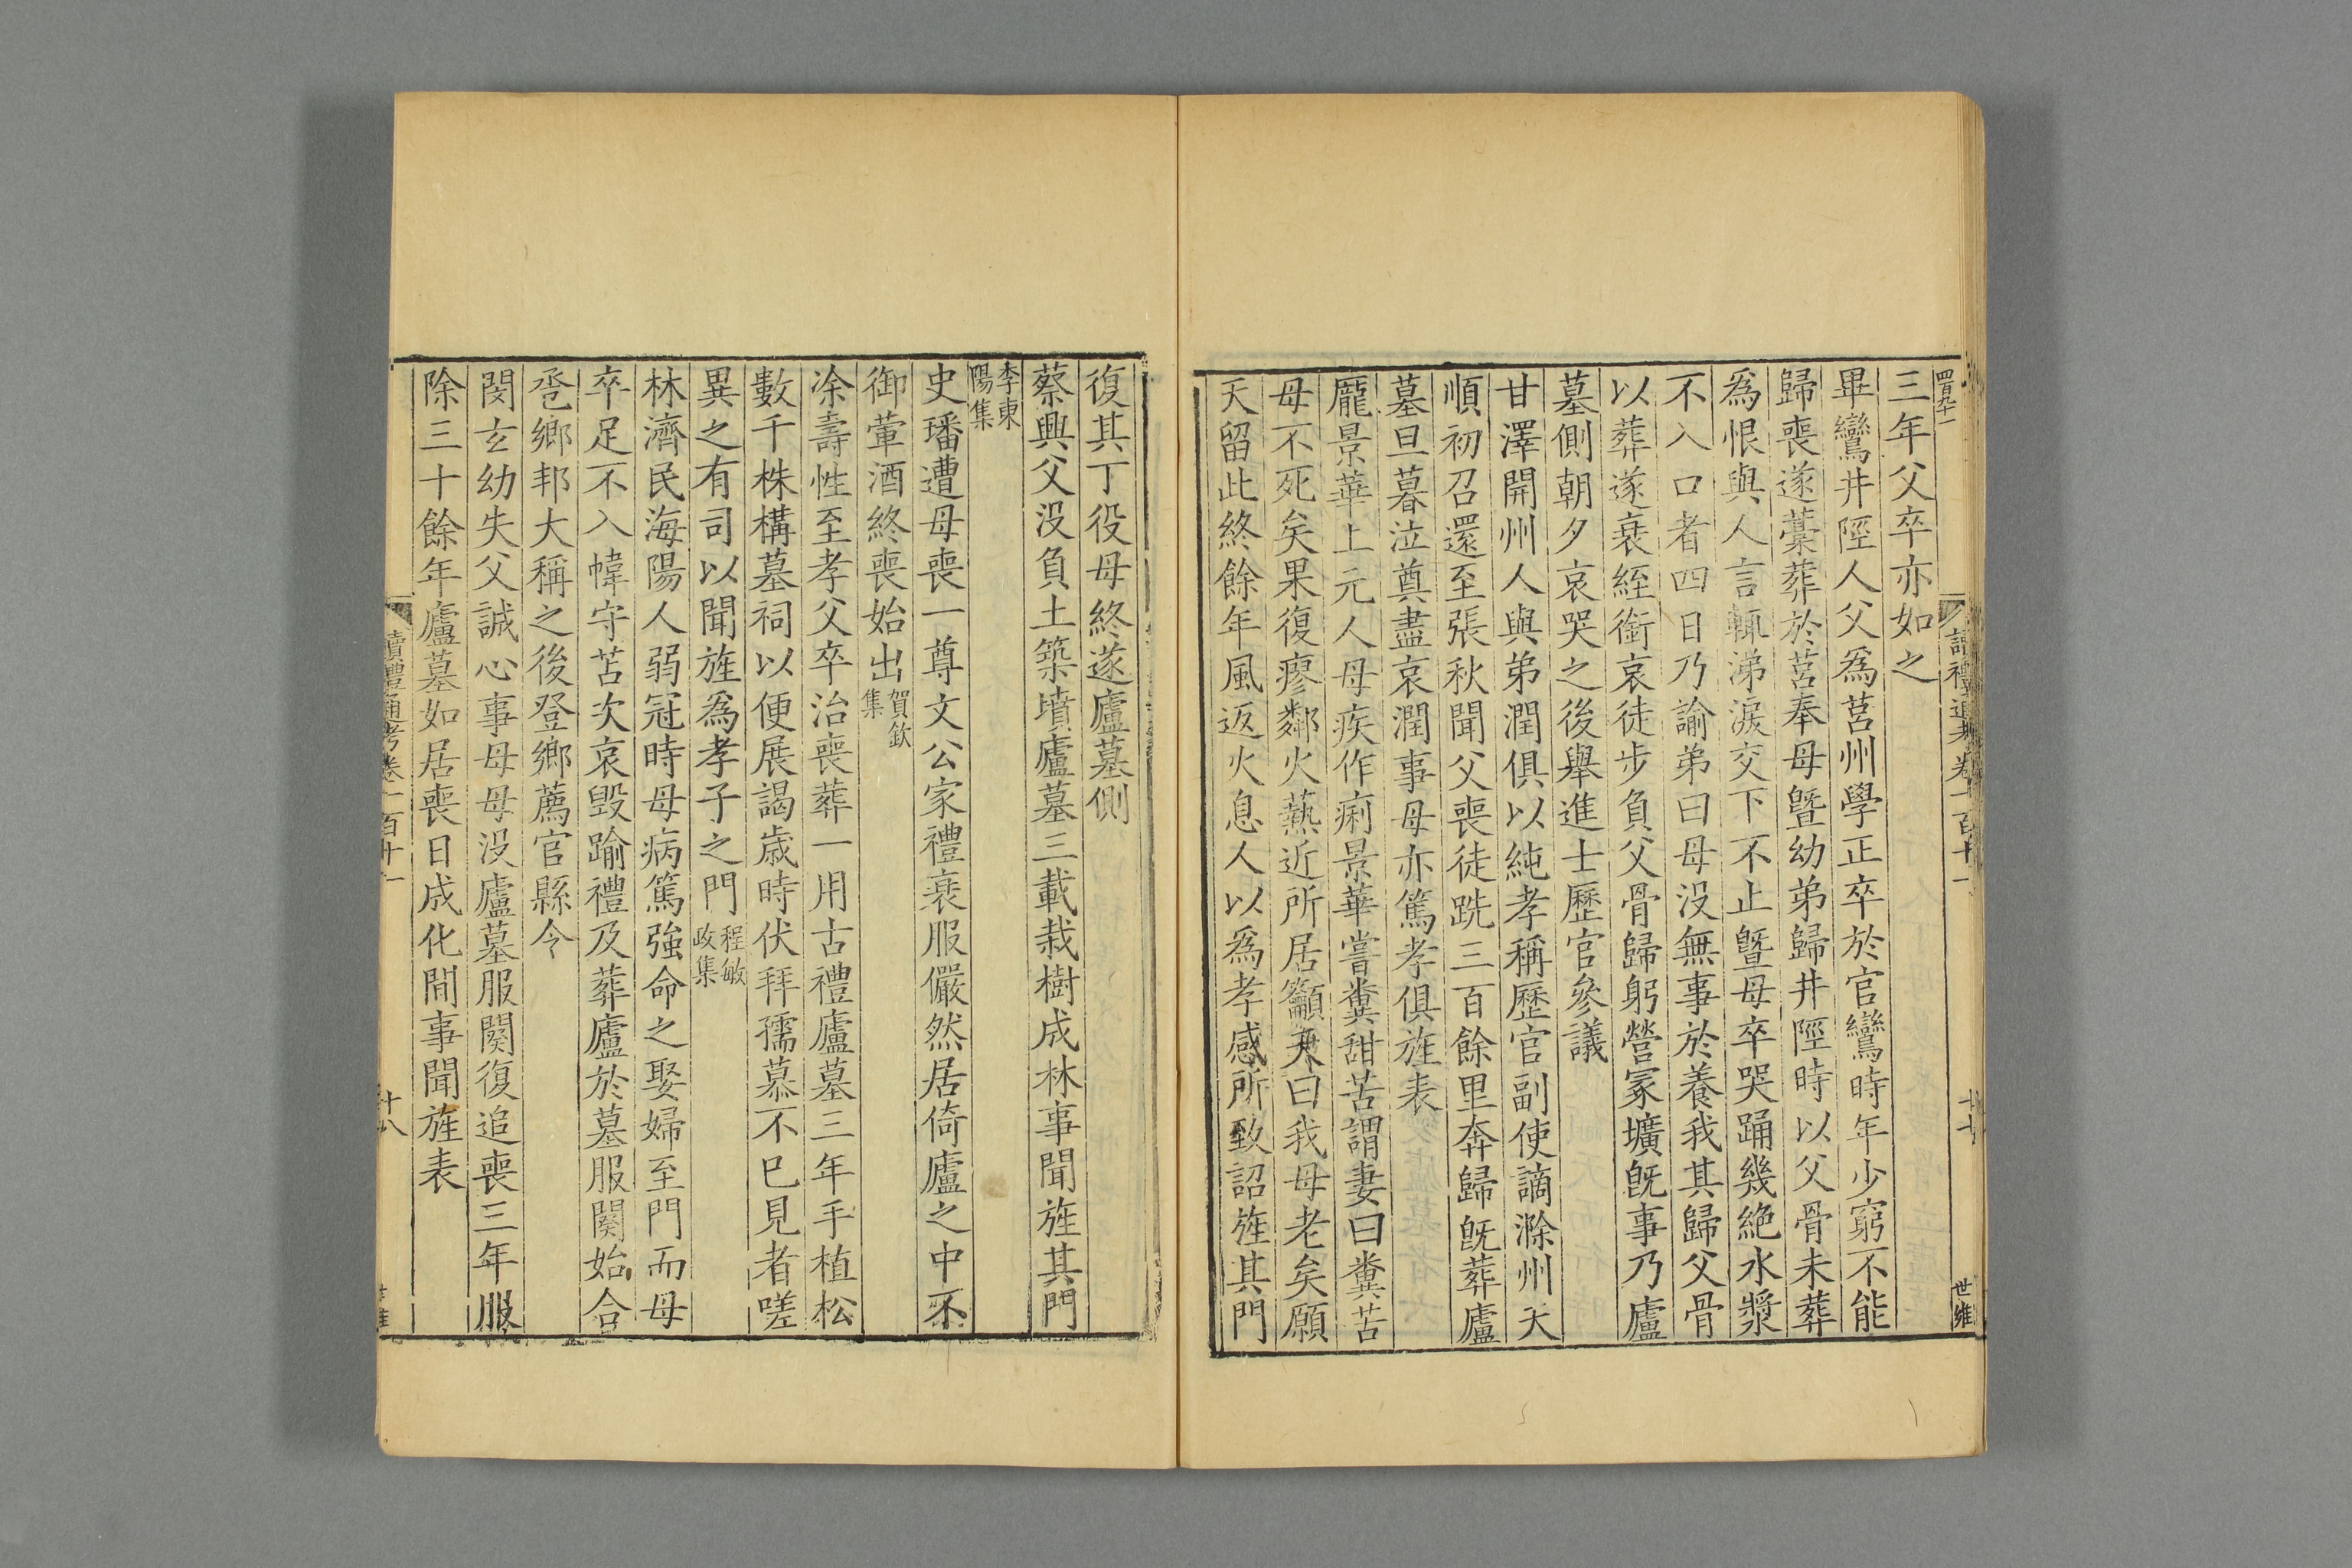 三年父卒亦如之
畢鸞井陘人父爲莒州學正卒於官鸞時年少窮不能
歸喪遂藁葬於莒奉母曁幼弟歸井陘時以父骨未葬
爲恨與人言輒涕淚交下不止曁母卒哭踊幾絶水漿
不入口者四日乃諭弟曰母没無事於養我其歸父骨
以葬遂衰絰銜哀徒步負父骨歸躬營冢壙旣事乃廬
墓側朝夕哀哭之後舉進士歷官參議
甘澤開州人與弟潤俱以純孝稱歷官副使謫滁州天
順初召還至張秋聞父喪徒跣三百餘里奔歸旣葬廬
墓旦暮泣奠盡哀潤事母亦篤孝俱旌表
龐景華上元人母疾作痢景華嘗糞甜苦謂妻曰糞苦
母不死矣果復瘳鄰火爇近所居籲天曰我母老矣願
天留此終餘年風返火息人以爲孝感所致詔旌其門
讀禮通考卷一百十一
十七
世維
復其丁役母終遂廬墓側
蔡興父没負土築墳廬墓三載栽樹成林事聞旌其門
李東
陽集
史璠遭母喪一尊文公家禮衰服儼然居倚廬之中不
御葷酒終喪始出賀欽
集
涂壽性至孝父卒治喪葬一用古禮廬墓三年手植松
數千株構墓祠以便展謁歲時伏拜孺慕不已見者嗟
異之有司以聞旌爲孝子之門程敏
政集
林濟民海陽人弱冠時母病篤強命之娶婦至門而母
卒足不入幃守苫次哀毁踰禮及葬廬於墓服闋始合
巹鄉邦大稱之後登鄉薦官縣令
閔玄幼失父誠心事母母没廬墓服闋復追喪三年服
除三十餘年廬墓如居喪日成化間事聞旌表
讀禮通考卷一百十一
十八